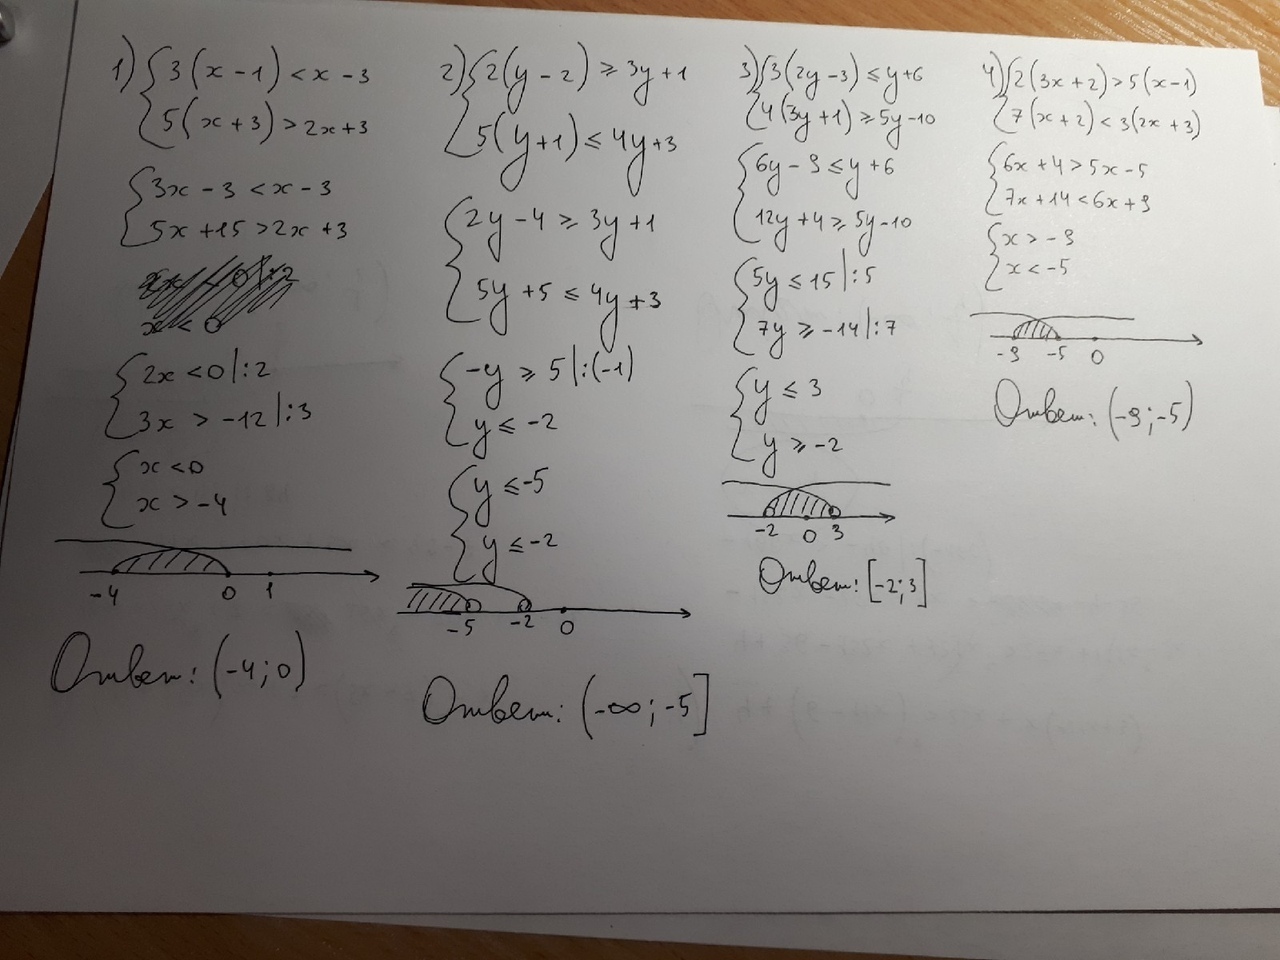 1) { 3(x-1) < x-3
5(x+3) > 2x+3
{ 3x-3 < x-3
5x+15 > 2x+3
x < 0
{ 2x < 0 |:2
3x > -12 |:3
{ x < 0
x > -4
-4 0 1
Ответ: (-4; 0)
2) { 2(y-2) ⩾ 3y+1
5(y+1) ⩽ 4y+3
{ 2y-4 ⩾ 3y+1
5y+5 ⩽ 4y+3
{ -y ⩾ 5 |:(-1)
y ⩽ -2
{ y ⩽ -5
y ⩽ -2
-5 -2 0
Ответ: (-∞; -5]
3) { 3(2y-3) ⩽ y+6
4(3y+1) ⩾ 5y-10
{ 6y-9 ⩽ y+6
12y+4 ⩾ 5y-10
{ 5y ⩽ 15 |:5
7y ⩾ -14 |:7
{ y ⩽ 3
y ⩾ -2
-2 0 3
Ответ: [-2; 3]
4) { 2(3x+2) > 5(x-1)
7(x+2) < 3(2x+3)
{ 6x+4 > 5x-5
7x+14 < 6x+9
{ x > -9
x < -5
-9 -5 0
Ответ: (-9; -5)